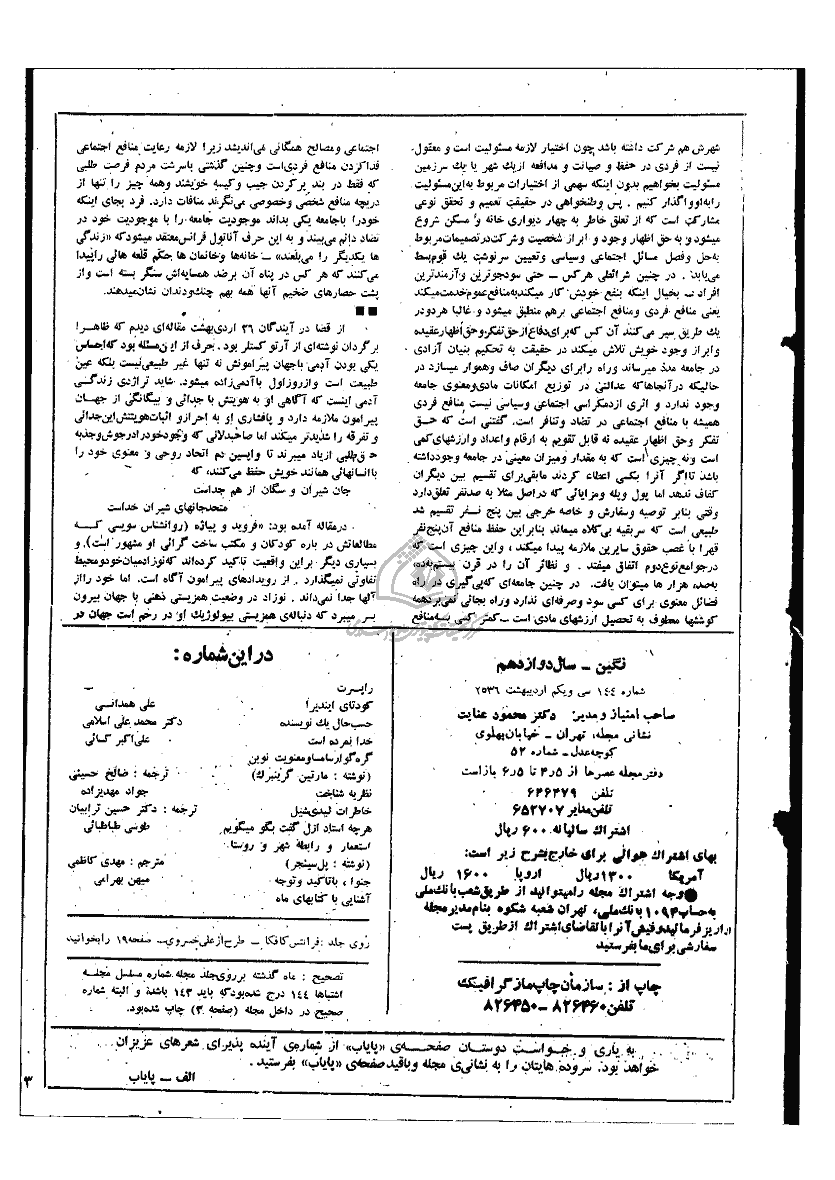 شهرش هم شرکت داشته باشد چون اختیار لازمه مسئولیت است و معقول
نیست از فردی در حفظ و صیانت و مدافعه از یک شهر یا یک سرزمین
مسئولیت بخواهیم بدون اینکه سهمی از اختیارات مربوط به این مسئولیت
را به او واگذار کنیم . پس وطنخواهی در حقیقت تعمیم و تحقق نوعی
مشارکت است که از تعلق خاطر به چهار دیواری خانه و مسکن شروع
میشود و به حق اظهار وجود و ابراز شخصیت و شرکت در تصمیمات مربوط
به حل و فصل مسائل اجتماعی و سیاسی و تعیین سرنوشت یک قوم بسط
می‌یابد . در چنین شرائطی هرکس ـ حتی سودجوترین و آزمندترین
افراد ـ بخیال اینکه بنفع خودش کار میکند به منافع عموم خدمت میکند
یعنی منافع فردی و اجتماعی برهم منطبق میشود و غالبا هردو در
یک طریق سیر می‌کنند. آن کس که برای دفاع از حق تفکر و حق اظهار عقیده
و ابراز وجود خویش تلاش میکند در حقیقت به تحکیم بنیان آزادی
در جامعه مدد میرساند و راه را برای دیگران صاف و هموار میسازد در
حالیکه در آنجاها که عدالتی در توزیع امکانات مادی و معنوی جامعه
وجود ندارد و اثری از دمکراسی اجتماعی و سیاسی نیست منافع فردی
همیشه با منافع اجتماعی در تضاد و تنافر است. گفتنی است که حق
تفکر و حق اظهار عقیده نه قابل تقویم به ارقام و اعداد و ارزشهای کمی
است و نه چیزی است که به مقدار و میزان معینی در جامعه وجود داشته
باشد تا اگر آنرا بکسی اعطاء کردند مابقی برای تقسیم بین دیگران
کفاف ندهد اما پول و پله و مزایائی که در اصل مثلا به صد نفر تعلق دارد
وقتی بنابر توصیه و سفارش و خاصه خرجی بین پنج نفر تقسیم شد
طبیعی است که سر بقیه بی‌کلاه میماند بنابراین حفظ منافع آن پنج نفر
قهرا با غصب حقوق سایرین ملازمه پیدا میکند ، و این چیزی است که
در جوامع نوع دوم اتفاق میفتد . و نظائر آن را در قرن بیستم
به صد، هزار ها میتوان یافت. در چنین جامعه‌ای که پی‌گیری در راه
فضائل معنوی برای کسی سود و صرفه‌ای ندارد و راه بجائی نمی‌برد همه
کوششها معطوف به تحصیل ارزشهای مادی است ـ کمتر کسی به منافع
اجتماعی و مصالح همگانی می‌اندیشد زیرا لازمه رعایت منافع اجتماعی
فدا کردن منافع فردی است و چنین گذشتی با سرشت مردم فرصت طلبی
که فقط در بند پر کردن جیب و کیسه خویشند و همه چیز را تنها از
دریچه منافع شخصی و خصوصی می‌نگرند منافات دارد. فرد بجای اینکه
خود را با جامعه یکی بداند موجودیت جامعه را با موجودیت خود در
تضاد دائم می‌بیند و به این حرف آناتول فرانس معتقد میشود که «زندگی
ها یکدیگر را می‌بلعند» ـ خانه‌ها و خانمان ها حکم قلعه هائی را پیدا
می‌کنند که هر کس در پناه آن برضد همسایه‌اش سنگر بسته است و از
پشت حصارهای ضخیم آنها همه بهم چنگ و دندان نشان میدهند.
■ ■
از قضا در آیندگان ۲۶ اردیبهشت مقاله‌ای دیدم که ظاهرا
برگردان نوشته‌ای از آرتو کستلر بود . حرف از این مسئله بود که احساس
یکی بودن آدمی با جهان پیرامونش نه تنها غیر طبیعی نیست بلکه عین
طبیعت است و از روز اول با آدمی زاده میشود. شاید تراژدی زندگی
آدمی اینست که آگاهی او به هویتش با جدائی و بیگانگی از جهان
پیرامون ملازمه دارد و پافشاری او به احراز و اثبات هویتش این جدائی
و تفرقه را شدیدتر میکند اما صاحبدلانی که وجود خود را در جوش و جذبه
حق طلبی از یاد میبرند تا واپسین دم اتحاد روحی و معنوی خود را
با انسانهائی همانند خویش حفظ می‌کنند، که
جان شیران و سگان از هم جداست
متحد جانهای شیران خداست
در مقاله آمده بود: «فروید و پیاژه (روانشناس سویسی که
مطالعاتش در باره کودکان و مکتب ساخت گرائی او مشهور است)، و
بسیاری دیگر بر این واقعیت تاکید کرده‌اند که نوزاد میان خود و محیط
تفاوتی نمیگذارد . از رویدادهای پیرامون آگاه است. اما خود را از
آنها جدا نمی‌داند . نوزاد در وضعیت همزیستی ذهنی با جهان بیرون
بسر میبرد که دنباله‌ی همزیستی بیولوژیک او در رحم است جهان در
نگین ـ سال دوازدهم
شماره ۱۴۴ سی و یکم اردیبهشت ۲۵۳۶
صاحب امتیاز و مدیر: دکتر محمود عنایت
نشانی مجله، تهران ـ خیابان پهلوی
کوچه عدل ـ شماره ۵۲
دفتر مجله عصرها از ۴ر۵ تا ۶ر۵ باز است
تلفن ۶۴۶۴۷۹
تلفن مدیر ۶۵۲۷۰۷
اشتراک سالیانه ۶۰۰ ریال
بهای اشتراک هوائی برای خارج بشرح زیر است:
آمریکا ۱۳۰۰ ریال اروپا ۱۶۰۰ ریال
● وجه اشتراک مجله را میتوانید از طریق شعب بانک ملی
به حساب ۱۰۹۴ بانک ملی، تهران شعبه شکوه بنام مدیر مجله
واریز فرمائید و فیش آنرا با تقاضای اشتراک از طریق پست
سفارشی برای ما بفرستید
چاپ از : سازمان چاپ مازگرافیک
تلفن ۸۲۶۴۶۰ـ۸۲۶۴۵۰
در این شماره :
راپرت
کودتای ایندیرا علی همدانی
حسب حال یک نویسنده دکتر محمد علی اسلامی
خدا نمرده است علی‌اکبر کسائی
گره گوار سامسا و معنویت نوین
(نوشته : مارتین گرینبرک) ترجمه : صالح حسینی
نظریه شناخت جواد مهدیزاده
خاطرات لیدی شیل ترجمه : دکتر حسین ترابیان
هرچه استاد ازل گفت بگو میگویم طوسی طباطبائی
استعمار و رابطه شهر و روستا
(نوشته : پل سینجر) مترجم : مهدی کاظمی
جنوا ، با تاکید و توجه میهن بهرامی
آشنایی با کتابهای ماه
روی جلد : فرانتس کافکا ـ طرح از علی خسروی ـ صفحه ۱۹ را بخوانید
تصحیح : ماه گذشته بر روی جلد مجله شماره مسلسل مجله
اشتباها ۱۴۴ درج شده بود که باید ۱۴۳ باشد و البته شماره
صحیح در داخل مجله (صفحه ۳) چاپ شده بود.
به یاری و خواست دوستان صفحه‌ی «پایاب» از شماره‌ی آینده پذیرای شعرهای عزیزان
خواهد بود. سروده هایتان را به نشانی‌ی مجله و با قید صفحه‌ی «پایاب» بفرستید .
الف ـ پایاب
۳